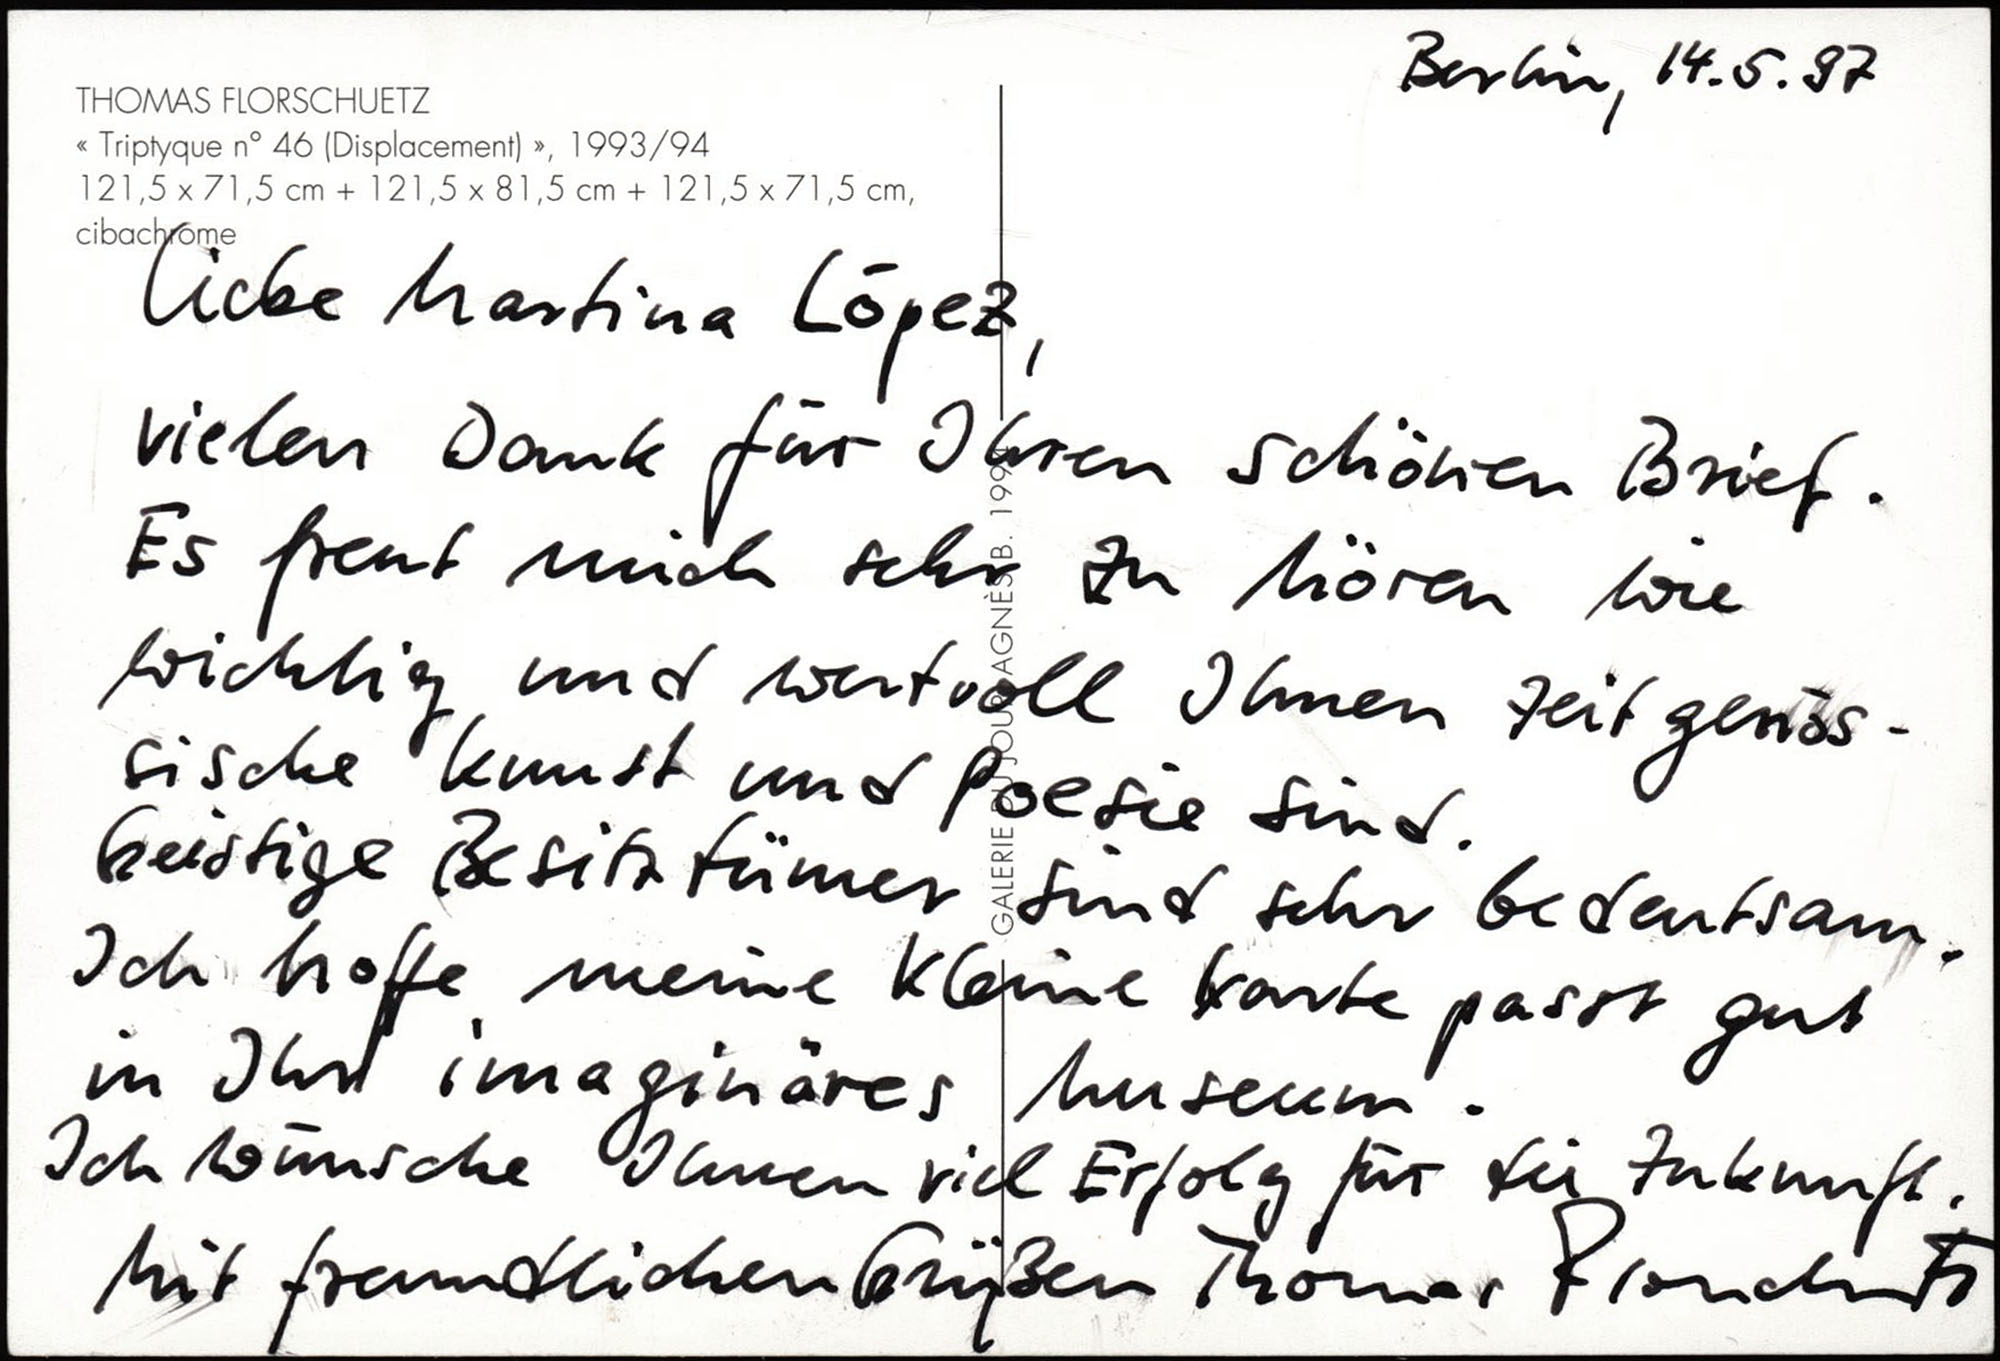 Berlin, 14.5.97
THOMAS FLORSCHUETZ
« Triptyque n° 46 (Displacement) », 1993/94
121,5 x 71,5 cm + 121,5 x 81,5 cm + 121,5 x 71,5 cm,
cibachrome
Liebe Martina López,
vielen Dank für Ihren schönen Brief.
Es freut mich sehr zu hören wie
wichtig und wertvoll Ihnen zeitgenös-
sische Kunst und Poesie sind.
Geistige Besitztümer sind sehr bedeutsam.
Ich hoffe, meine kleine Karte passt gut
in Ihr imaginäres Museum.
Ich wünsche Ihnen viel Erfolg für die Zukunft.
Mit freundlichen Grüßen Thomas Florschuetz
GALERIE DU JOUR AGNÈS B. 1994